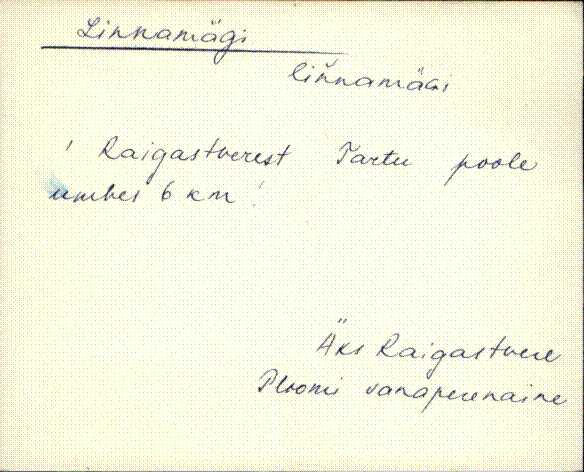 Linnamägi
lińnamäɢi
' Raigastverest Tartu poole
umbes 6 km '
Äks Raigastvere
Ploomi vanaperenaine